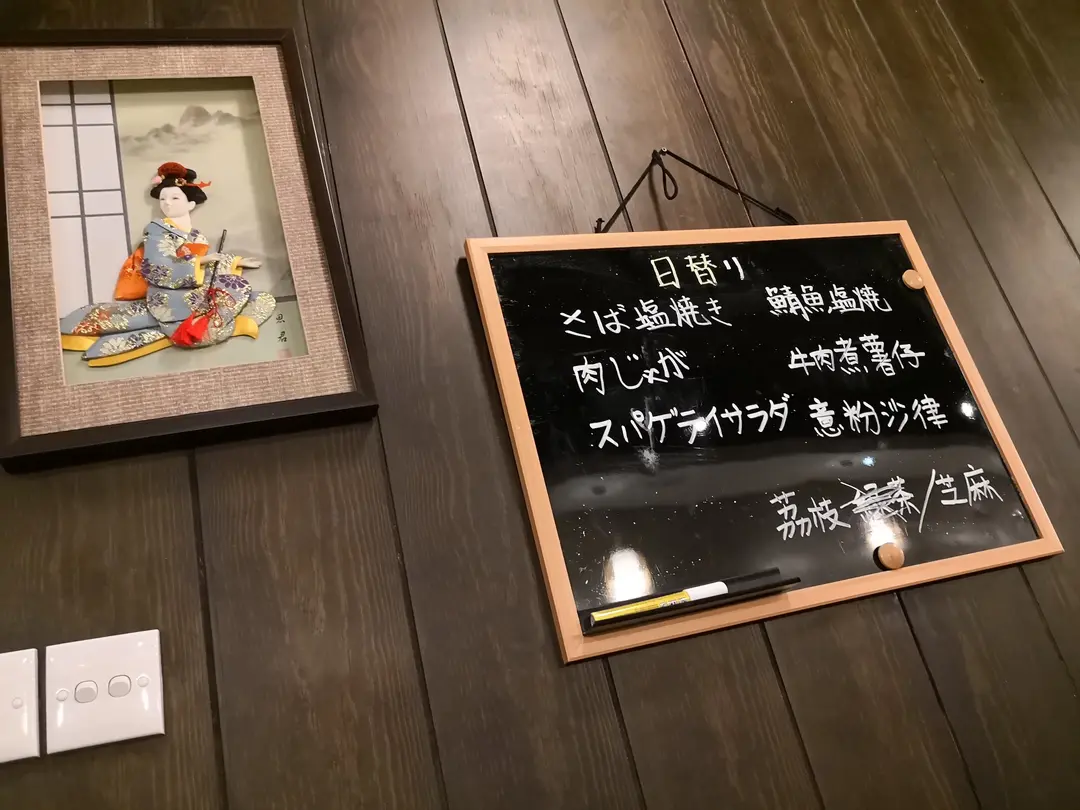 日替り
さば塩焼き 鯖魚塩焼
肉じゃが 牛肉煮薯仔
スパゲティサラダ 意粉沙律
荔枝 緑茶/芝麻